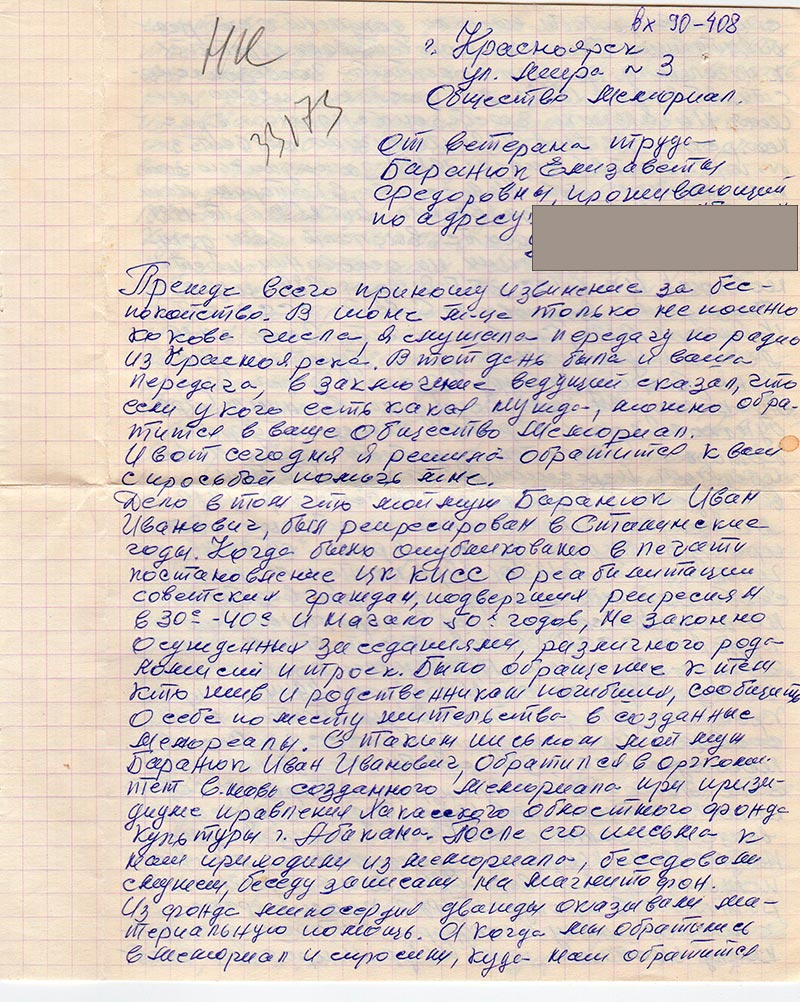 вх 90-408
НК
33173
г. Красноярск
ул. Мира № 3
Общество Мемориал.
От ветерана труда
Баранюк Елизаветы
Федоровны, проживающий
по адресу:
Прежде всего приношу извинение за бес-
покойство. В июне м-це только не помню
какова числа, я слушала передачу по радио
из Красноярска. В тот день была и ваша
передача, в заключение ведущий сказал, что
если у кого есть какая нужда, можно обра-
тится в ваше Общество Мемориал.
И вот сегодня я решила обратится к вам
с просьбой помочь мне.
Дело в том что мой муж Баранюк Иван
Иванович, был репресирован в Сталинские
годы. Когда было опубликовано в печати
постановление ЦК КПСС о реабилитации
советских граждан, подвергших репресиям
в 30е-40е и начало 50х годов, не законно
осужденных заседаниями, различного рода
комисий и троек. Было обращение к тем
кто жив и родственникам погибших, сообщить
о себе по месту жительства в созданные
Мемореалы. С таким письмом мой муж
Баранюк Иван Иванович, обратился в оргкоми-
тет в-новь созданного Мемориала при прези-
диуме правления Хакасского областного фонда
культуры г. Абакана. После его письма к
нам приходили из мемориала, беседовали
с мужем, беседу записали на магнитофон.
Из фонда милосердия дважды оказывали ма-
териальную помощь. А когда мы обратились
в мемориал и спросили, куда нам обратится